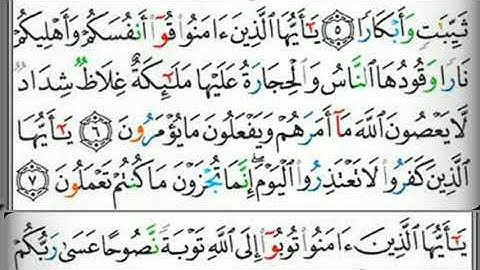 ثَيِّبَٰتٍ وَأَبْكَارًا ۝٥ يَٰٓأَيُّهَا ٱلَّذِينَ ءَامَنُوا۟ قُوٓا۟ أَنفُسَكُمْ وَأَهْلِيكُمْ
نَارًا وَقُودُهَا ٱلنَّاسُ وَٱلْحِجَارَةُ عَلَيْهَا مَلَٰٓئِكَةٌ غِلَاظٌ شِدَادٌ
لَّا يَعْصُونَ ٱللَّهَ مَآ أَمَرَهُمْ وَيَفْعَلُونَ مَا يُؤْمَرُونَ ۝٦ يَٰٓأَيُّهَا
ٱلَّذِينَ كَفَرُوا۟ لَا تَعْتَذِرُوا۟ ٱلْيَوْمَ ۖ إِنَّمَا تُجْزَوْنَ مَا كُنتُمْ تَعْمَلُونَ ۝٧
يَٰٓأَيُّهَا ٱلَّذِينَ ءَامَنُوا۟ تُوبُوٓا۟ إِلَى ٱللَّهِ تَوْبَةً نَّصُوحًا عَسَىٰ رَبُّكُمْ